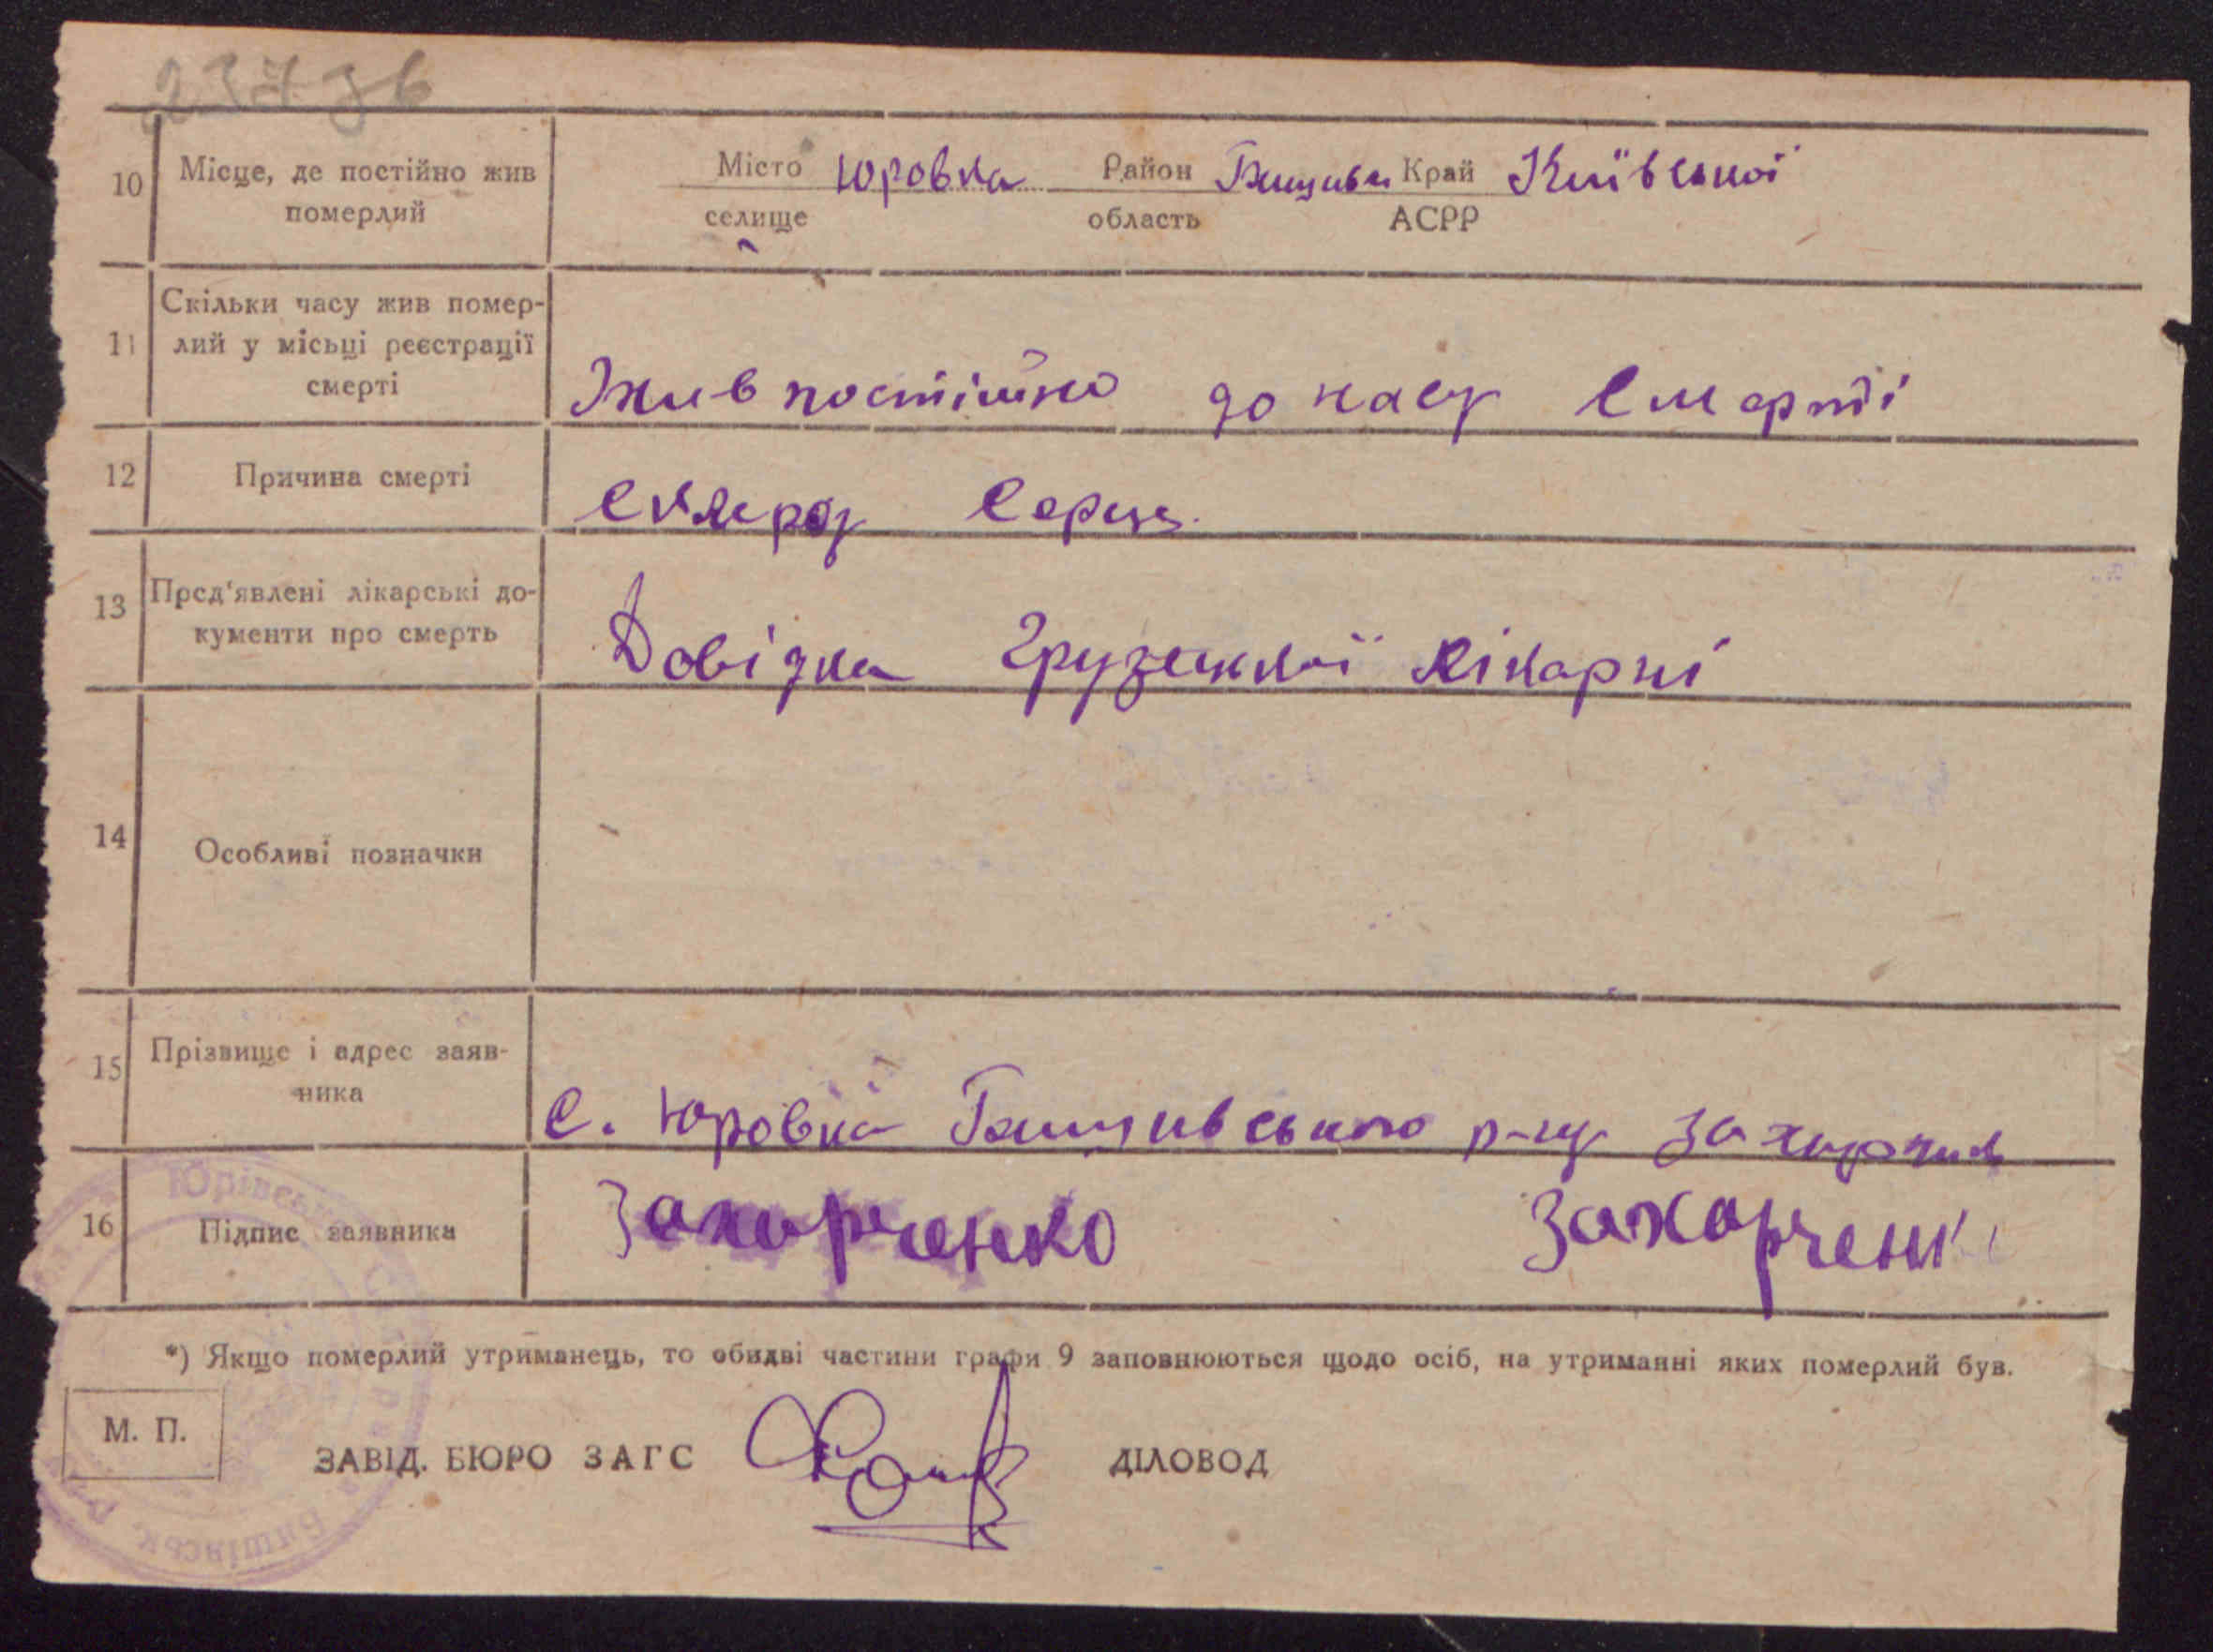 237 зв
10 Місце, де постійно жив Місто Юровка Район Край Київської
померлий селище область АСРР
Скільки часу жив помер-
11 лий у місьці реєстрації
смерті Жив постійно до часу смерті
12 Причина смерті Склероз серця
13 Пред'явлені лікарські до-
кументи про смерть Довідка Грузської лікарні
14 Особливі позначки
15 Прізвище і адрес заяв-
ника с. Юровка р-ну
16 Підпис заявника Захарченко Захарченк
*) Якщо померлий утриманець, то обидві частини графи 9 заповнюються щодо осіб, на утриманні яких померлий був.
М. П.
ЗАВІД. БЮРО ЗАГС ДІЛОВОД